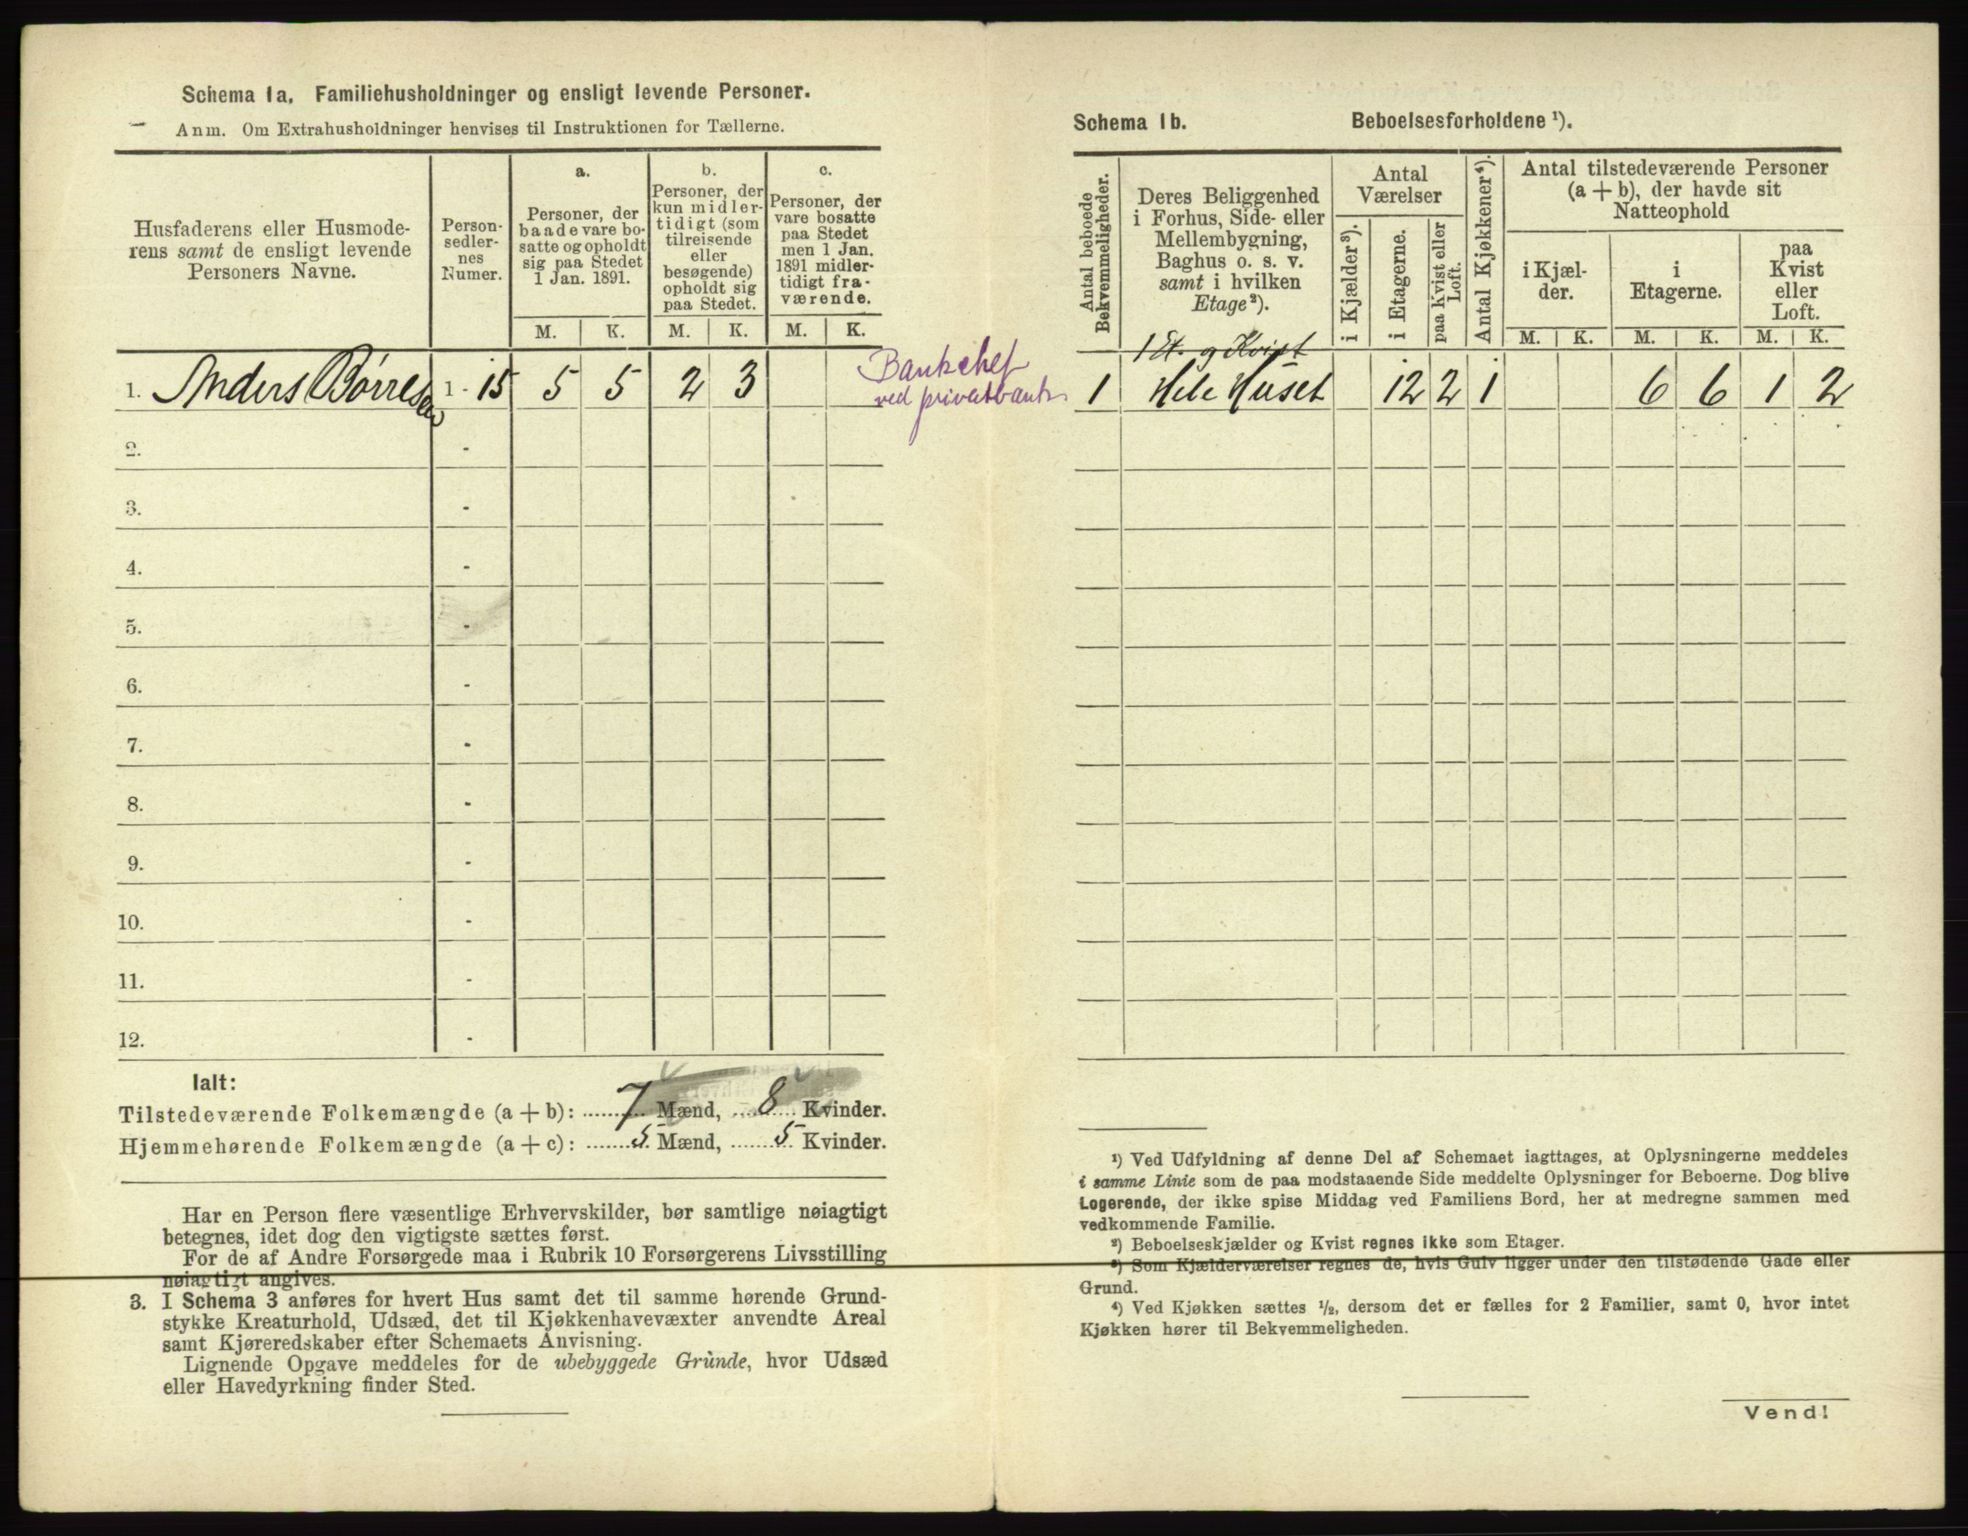 Schema 1a. Familiehusholdninger og ensligt levende Personer.
Anm. Om Extrahusholdninger henvises til Instruktionen for Tællerne.
Husfaderens eller Husmode-
rens samt de ensligt levende
Personers Navne.
Person-
sedler-
nes
Numer.
a.
Personer, der
baade vare bo-
satte og opholdt
sig paa Stedet
1 Jan. 1891.
b.
Personer, der
kun midler-
tidigt (som
tilreisende
eller
besøgende)
opholdt sig
paa Stedet.
c.
Personer, der
vare bosatte
paa Stedet
men 1 Jan.
1891 midler-
tidigt fra-
værende.
M. K. M. K. M. K.
1. Anders Børresen 1 - 15 5 5 2 3
Bankchef
ved privatbank
2. -
3. -
4. -
5. -
6. -
7. -
8. -
9. -
10. -
11. -
12. -
Ialt:
Tilstedeværende Folkemængde (a + b): 7 Mænd, 8 Kvinder.
Hjemmehørende Folkemængde (a + c): 5 Mænd, 5 Kvinder.
Har en Person flere væsentlige Erhvervskilder, bør samtlige nøiagtigt
betegnes, idet dog den vigtigste sættes først.
For de af Andre Forsørgede maa i Rubrik 10 Forsørgerens Livsstilling
nøiagtigt angives.
3. I Schema 3 anføres for hvert Hus samt det til samme hørende Grund-
stykke Kreaturhold, Udsæd, det til Kjøkkenhavevæxter anvendte Areal
samt Kjøreredskaber efter Schemaets Anvisning.
Lignende Opgave meddeles for de ubebyggede Grunde, hvor Udsæd
eller Havedyrkning finder Sted.
Schema 1b. Beboelsesforholdene ¹).
Antal beboede
Bekvemmeligheder.
Deres Beliggenhed
i Forhus, Side- eller
Mellembygning,
Baghus o. s. v.
samt i hvilken
Etage²).
Antal
Værelser
i Kjælder³).
i Etagerne.
paa Kvist eller
Loft.
Antal Kjøkkener⁴).
Antal tilstedeværende Personer
(a + b), der havde sit
Natteophold
i Kjæl-
der.
i
Etagerne.
paa
Kvist
eller
Loft.
M. K. M. K. M. K.
1 Et. og Kvist
1 Hele Huset 12 2 1 6 6 1 2
¹) Ved Udfyldning af denne Del af Schemaet iagttages, at Oplysningerne meddeles
i samme Linie som de paa modstaaende Side meddelte Oplysninger for Beboerne. Dog blive
Logerende, der ikke spise Middag ved Familiens Bord, her at medregne sammen med
vedkommende Familie.
²) Beboelseskjælder og Kvist regnes ikke som Etager.
³) Som Kjælderværelser regnes de, hvis Gulv ligger under den tilstødende Gade eller
Grund.
⁴) Ved Kjøkken sættes ½, dersom det er fælles for 2 Familier, samt 0, hvor intet
Kjøkken hører til Bekvemmeligheden.
Vend!